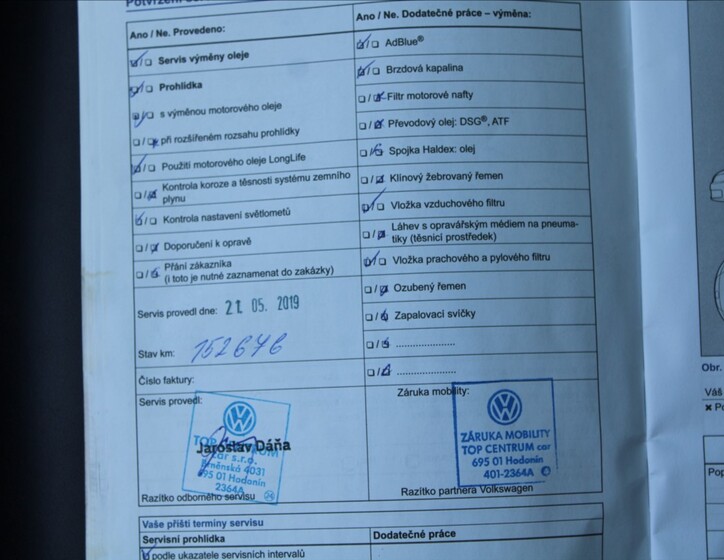 Ano / Ne. Provedeno:
Servis výměny oleje
Prohlídka
s výměnou motorového oleje
při rozšířeném rozsahu prohlídky
Použití motorového oleje LongLife
Kontrola koroze a těsnosti systému zemního
plynu
Kontrola nastavení světlometů
Doporučení k opravě
Přání zákazníka
(i toto je nutné zaznamenat do zakázky)
Servis provedl dne: 21. 05. 2019
Stav km: 152676
Číslo faktury:
Servis provedl:
Jaroslav Dáňa
car s.r.o.
Brněnská 4031
695 01 Hodonín
2364A
Razítko odborného servisu
Ano / Ne. Dodatečné práce – výměna:
AdBlue®
Brzdová kapalina
Filtr motorové nafty
Převodový olej: DSG®, ATF
Spojka Haldex: olej
Klínový žebrovaný řemen
Vložka vzduchového filtru
Láhev s opravářským médiem na pneuma-
tiky (těsnicí prostředek)
Vložka prachového a pylového filtru
Ozubený řemen
Zapalovací svíčky
Záruka mobility:
ZÁRUKA MOBILITY
TOP CENTRUM car
695 01 Hodonín
401-2364A
Razítko partnera Volkswagen
Vaše příští termíny servisu
Servisní prohlídka
Dodatečné práce
podle ukazatele servisních intervalů
Obr.